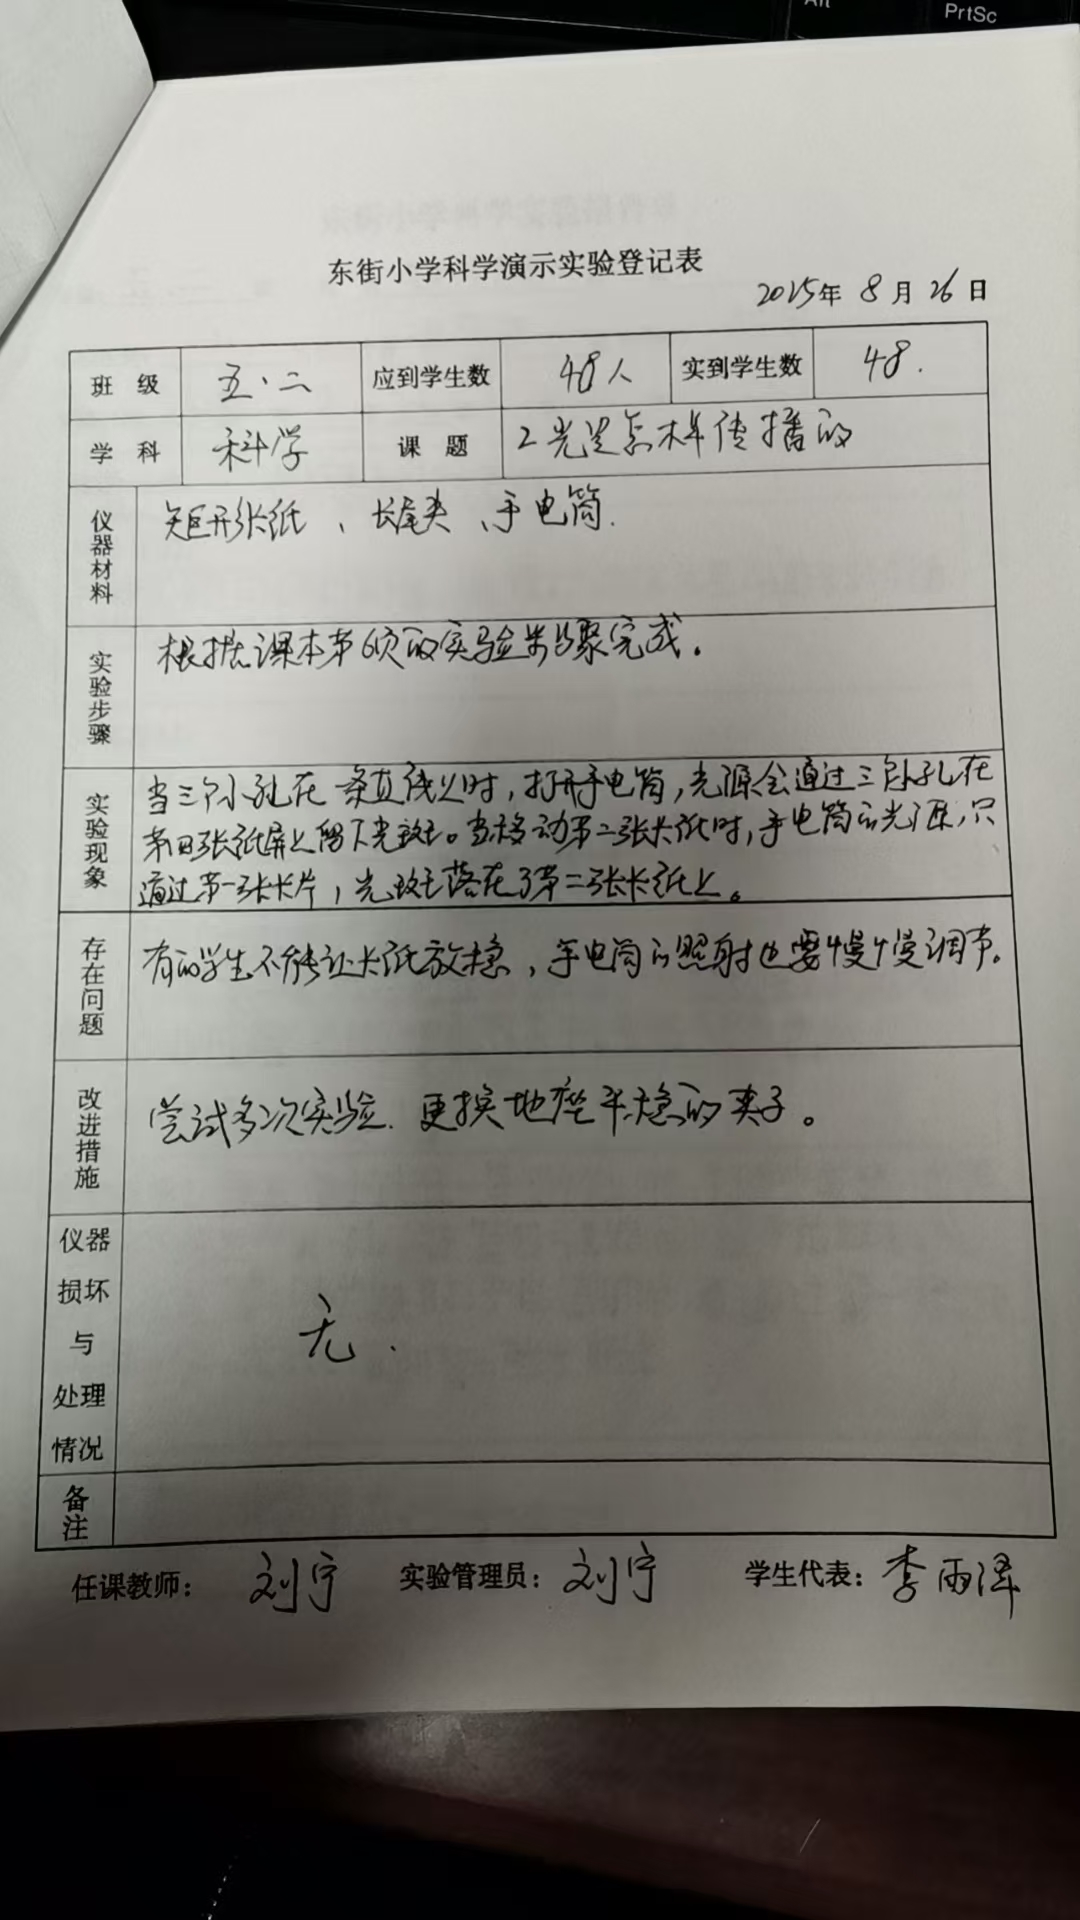 Alt
PrtSc
东街小学科学演示实验登记表
2025年 8 月 26 日
班 级 五.二 应到学生数 48人 实到学生数 48.
学 科 科学 课 题 2光是怎样传播的
仪器材料 矩形张纸、长尾夹、手电筒.
实验步骤 根据课本第6页的实验步骤完成。
实验现象 当三个小孔在一条直线上时,打开手电筒,光源会通过三个小孔在
第四张纸屏上留下光斑。当移动第二张卡纸时,手电筒的光源,只
通过第一张卡片,光斑落在了第二张卡纸上。
存在问题 有的学生不能让卡纸放稳,手电筒的照射也要慢慢调节。
改进措施 尝试多次实验.更换地座平稳的夹子。
仪器
损坏
与
处理
情况
无.
备注
任课教师: 刘宁 实验管理员: 刘宁 学生代表: 李雨泽